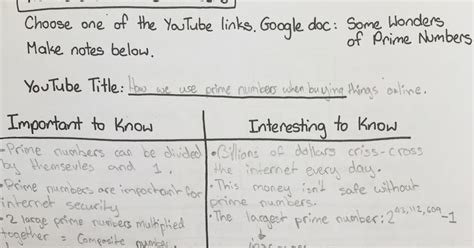 Choose one of the YouTube links. Google doc: Some Wonders
Make notes below. of Prime Numbers
YouTube Title: How we use prime numbers when buying things online.
Important to Know
• Prime numbers can be divided
by themselves and 1.
• Prime numbers are important for
internet security
• 2 large prime numbers multiplied
together = Composite number
Interesting to Know
• Billions of dollars criss-cross
the internet every day.
• This money isn't safe without
prime numbers.
• The largest prime number: 2^43,112,609 -1